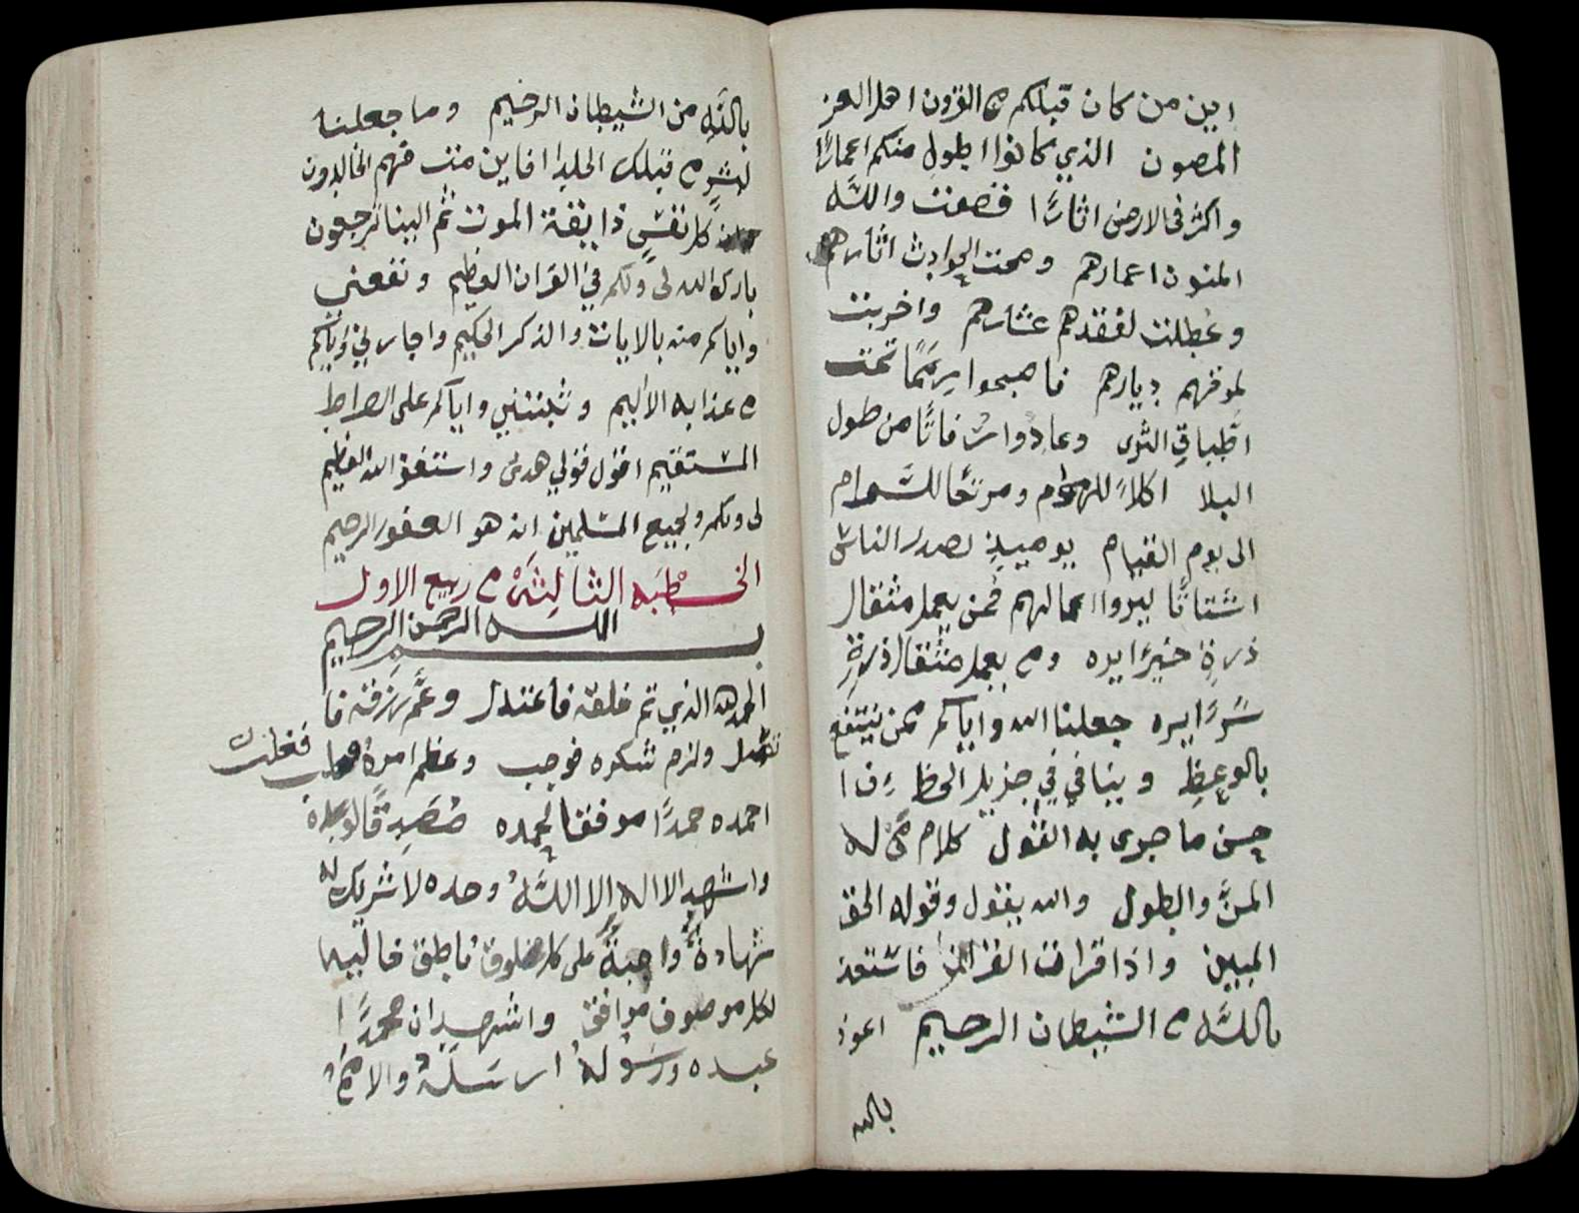 اين من كان قبلكم من القرون اهل العز
المصون الذي كانوا اطول منكم اعمارًا
واكثر فى الارض اثارًا فصفت والله
المنون اعمارهم ومحت الحوادث اثارهم
وعُطلت لفقدهم عشارهم واخربت
لموتهم ديارهم فاصبحوا رِمَمًا تحت
اطباقِ الثرى وعادوا رُفاتًا من طول
البلا اكلاً للهوام ومرتعًا للسَّوام
الى يوم القيام يوميذٍ يصدر الناس
اشتاتًا ليروا اعمالهم فمن يعمل مثقال
ذرةٍ خيرًا يره ومن يعمل مثقال ذرةٍ
شرًا يره جعلنا الله واياكم ممن ينتفع
بالوعظِ وينافس في جزيل الحظ إن ا
حسن ما جرى به القول كلام من له
المنَّ والطول والله يقول وقوله الحق
المبين واذا قرات القران فاستعذ
بالله من الشيطان الرجيم اعوذ
بالله
بالله من الشيطان الرجيم وما جعلنا
لبشرٍ من قبلك الخلد افاين مت فهم الخالدون
كل نفسٍ ذايقة الموت ثم الينا ترجعون
بارك الله لى ولكم في القران العظيم ونفعني
واياكم منه بالايات والذكر الحكيم واجارني واياكم
من عذابه الاليم وثبتني واياكم على الصراط
المستقيم اقول قولي هدى واستغفر الله العظيم
لى ولكم ولجميع المسلمين انه هو الغفور الرحيم
الخطبه الثالثة من ربيع الاول
بسم الله الرحمن الرحيم
الحمد لله الذي تم خلقه فاعتدل وعَمَّ رزقه فا
تصل ولزم شكره فوجب وعظم امره فغلب
احمده حمدًا موفقا لحمده مُصَدِقًا لوعده
واشهد الا اله الا الله وحده لا شريك له
شهادةً واجبةً على كل مخلوق ناطق
لكل موصوف موافق واشهد ان محمدًا
عبده ورسُوله ارسَلهُ والامم